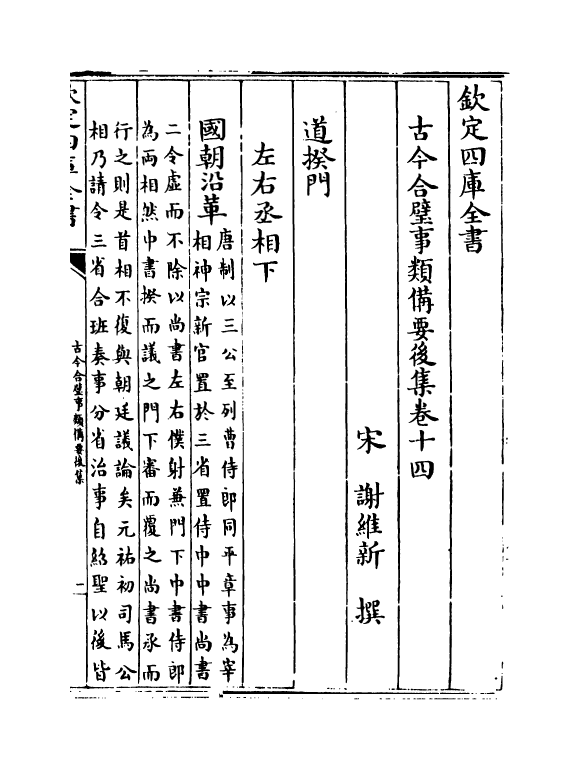 欽定四庫全書
古今合璧事類備要後集卷十四
宋 謝維新 撰
道揆門
左右丞相下
國朝沿革
唐制以三公至列曹侍郎同平章事為宰
相神宗新官置於三省置侍中中書尚書
二令虛而不除以尚書左右僕射兼門下中書侍郎
為兩相然中書揆而議之門下審而覆之尚書承而
行之則是首相不復與朝廷議論矣元祐初司馬公
相乃請令三省合班奏事分省治事自紹聖以後皆
欽定四庫全書
古今合璧事類備要後集